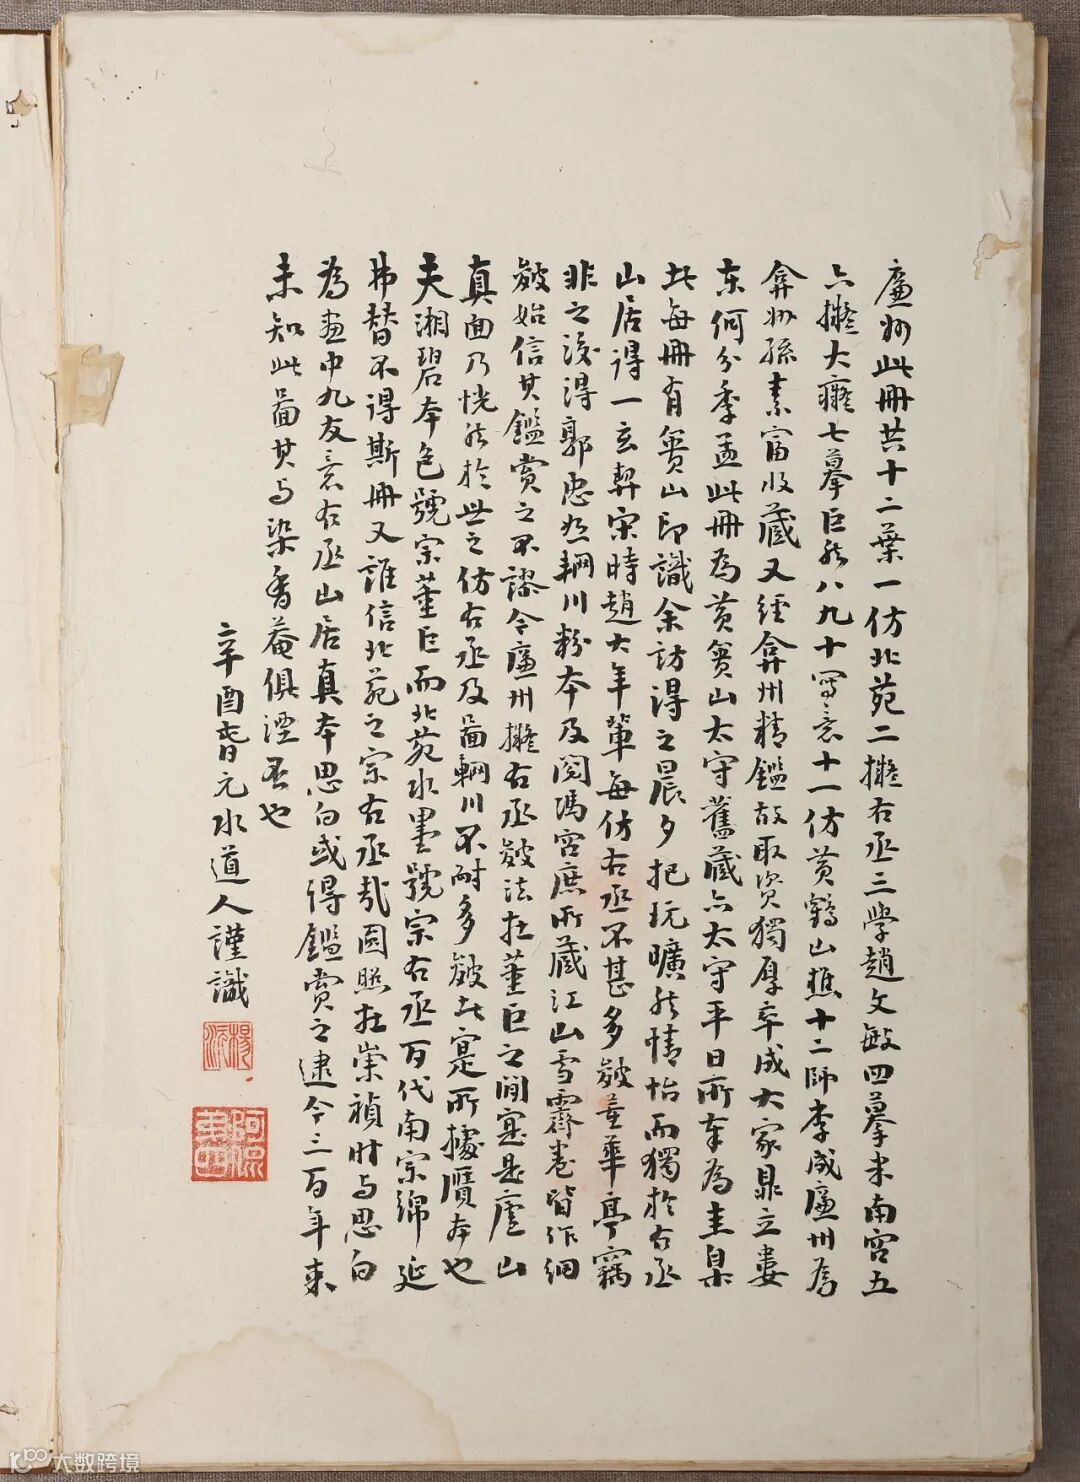 廉州此冊共十二葉一仿北苑二擬右丞三學趙文敏四摹米南宮五
六擬大癡七摹巨然八九十寫意十一仿黃鶴山樵十二師李成廉州為
弇州孫素富收藏又經弇州精鑑故取資獨厚卒成大家鼎立婁
東何分季孟此冊為黃賓山太守舊藏六太守平日所奉為圭臬
此每冊有賓山印識余訪得之晨夕把玩曠然情怡而獨於右丞
山居得一玄契宋時趙大年輩每仿右丞不甚多皴董華亭竊
非之後得郭忠恕輞川粉本及閱馮宮庶所藏江山雪霽卷皆作細
皴始信其鑑賞之不謬今廉州擬右丞皴法在董巨之間寔是廬山
真面乃恍然於世之仿右丞及圖輞川不耐多皴者寔所據贋本也
夫湘碧本色號宗董巨而北苑水墨號宗右丞百代南宗綿延
弗替不得斯冊又誰信北苑之宗右丞哉圓照在崇禎時与思白
為畫中九友意右丞山居真本思白或得鑑賞之逮今三百年來
未知此圖其与染香菴俱湮否也
辛酉春元水道人謹識